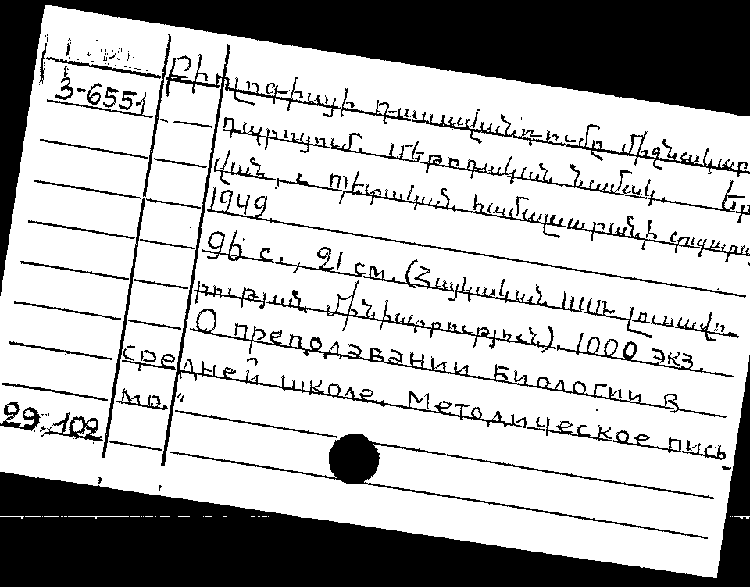 3-6551
Բիոլոգիայի դասավանդումը միջնակարգ
դպրոցում. Մեթոդական նամակ. Եր
վան, Պետական համալսարանի
1949.
96 с., 21 см. (Հայկական ՍՍՌ լուսավո
րության մինիստրություն). 1000 экз.
О преподавании биологии в
средней школе. Методическое пись
мо."
29.102